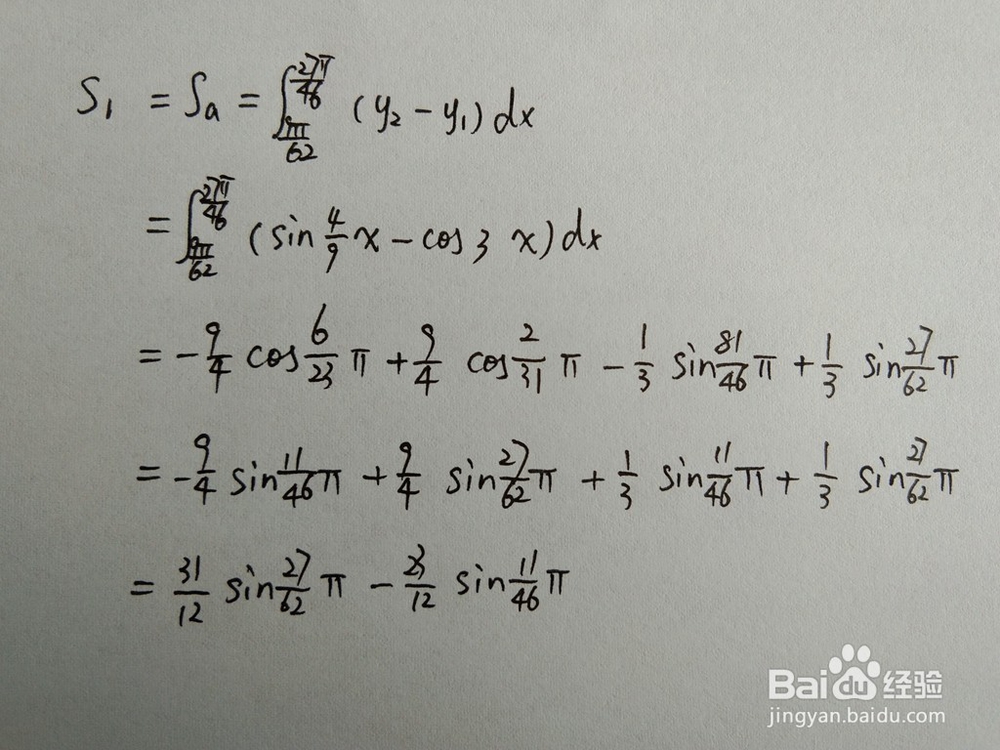 S₁ = Sₐ = ∫_{9π/62}^{27π/46} (y₂ - y₁) dx
= ∫_{9π/62}^{27π/46} (sin 4/9 x - cos 3 x) dx
= -9/4 cos 6/23 π + 9/4 cos 2/31 π - 1/3 sin 81/46 π + 1/3 sin 27/62 π
= -9/4 sin 11/46 π + 9/4 sin 27/62 π + 1/3 sin 11/46 π + 1/3 sin 27/62 π
= 31/12 sin 27/62 π - 23/12 sin 11/46 π
Baidu 经验
jingyan.baidu.com